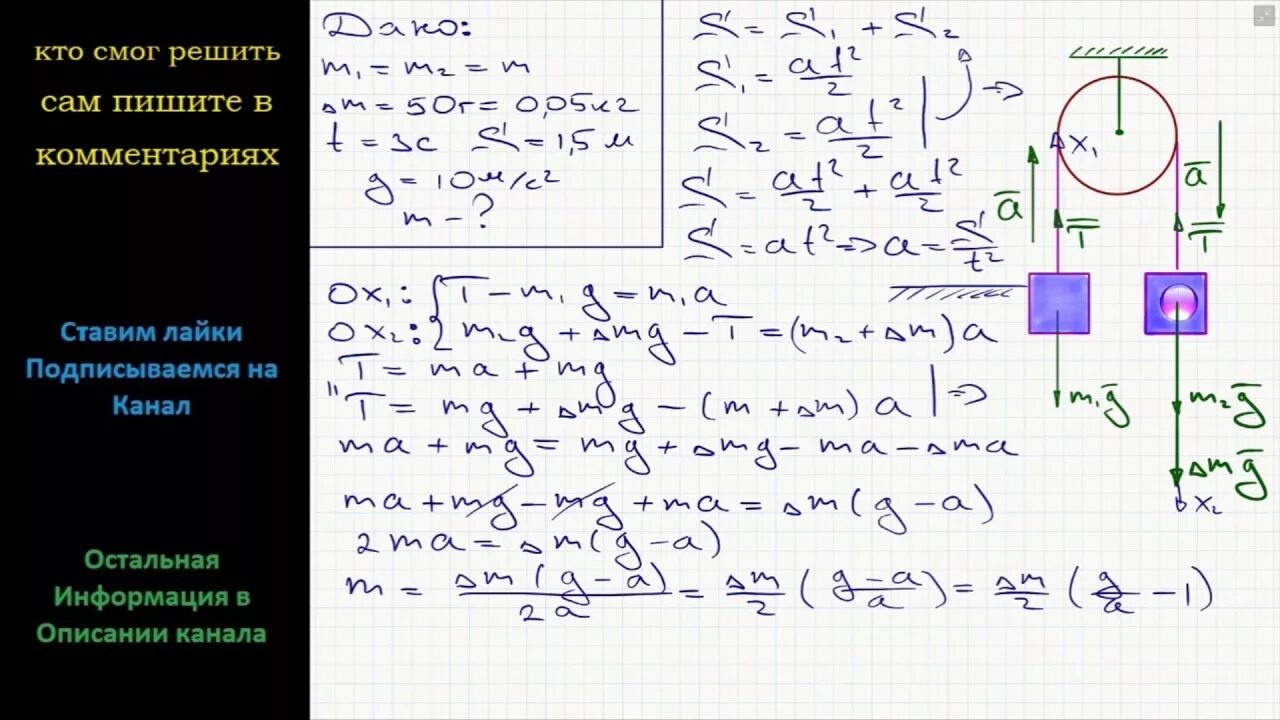 кто смог решить
сам пишите в
комментариях
Ставим лайки
Подписываемся на
Канал
Остальная
Информация в
Описании канала
Дано:
m₁ = m₂ = m
Δm = 50г = 0,05кг
t = 3с S = 1,5 м
g = 10 м/с²
m - ?
S = S₁ + S₂
S₁ = at²/2
S₂ = at²/2 | =>
S = at²/2 + at²/2
S = at² => a = S/t²
0x₁: { T - m₁g = m₁a
0x₂: { m₂g + Δmg - T = (m₂ + Δm)a
T = ma + mg
" T = mg + Δmg - (m + Δm)a | =>
ma + mg = mg + Δmg - ma - Δma
ma + mg - mg + ma = Δm(g - a)
2ma = Δm(g - a)
m = Δm(g - a)/2a = Δm/2 (g - a/a) = Δm/2 (g/a - 1)
x₁
a
a
T
T
m₁g
m₂g
Δmg
x₂